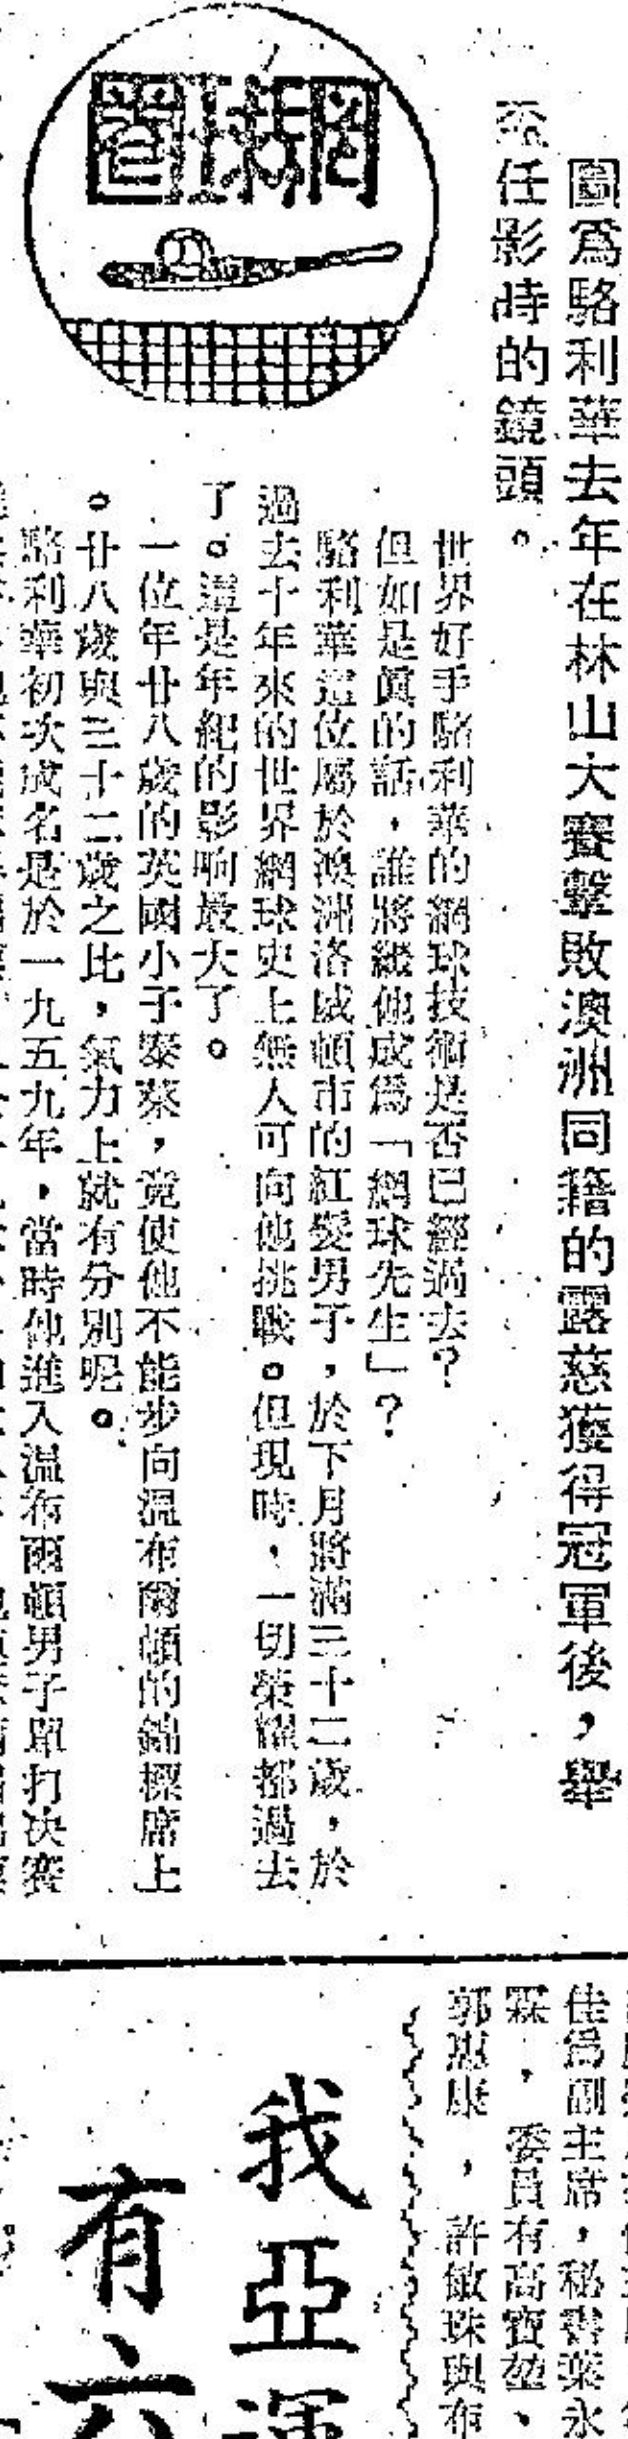 圖爲駱利華去年在林山大賽擊敗澳洲同籍的露慈獲得冠軍後，舉
盃任影時的鏡頭。
網球圈
世界好手駱利華的網球技術是否已經過去？
但如是眞的話，誰將繼他成爲「網球先生」？
駱利華這位屬於澳洲洛咸頓市的紅髮男子，於下月將滿三十二歲，於
過去十年來的世界網球史上無人可向他挑戰。但現時，一切榮耀都過去
了。這是年紀的影响最大了。
一位年廿八歲的英國小子泰萊，竟使他不能步向温布爾頓的錦標席上
。廿八歲與三十二歲之比，氣力上就有分別呢。
駱利華初次成名是於一九五九年，當時他進入温布爾頓男子單打决賽
佳爲副主席，秘書葉永
霖，委員有高寶堃、
郭惠康，許敏珠與布
我亞運
有六